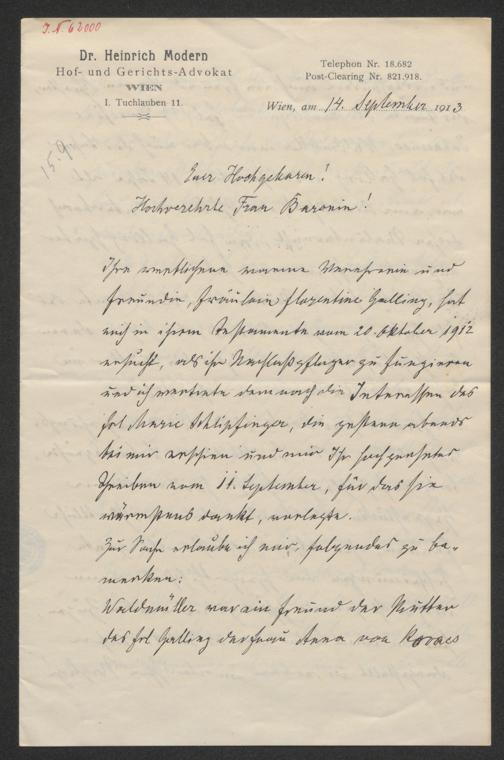 J.N. 62000
Dr. Heinrich Modern
Hof- und Gerichts-Advokat
WIEN
I. Tuchlauben 11.
Telephon Nr. 18.682
Post-Clearing Nr. 821.918.
Wien, am 14. September 1913
15.9
Euer Hochgeboren!
Hochverehrte Frau Baronin!
Ihre warme Verehrerin und
Freundin, Fräulein Florentine Galling, hat
mich in ihrem Testamente vom 20. Oktober 1912
ersucht, als ihr Nachlaßpfleger zu fungieren
und ich vertrete demnach die Interessen des
Frl Marie Schlipfinger, die gestern abends
bei mir erschien und mir Ihr hochgeehrtes
Schreiben vom 11. September, für das sie
wärmstens dankt, vorlegte.
Zur Sache erlaube ich mir, folgendes zu be-
merken:
Waldmüller war ein Freund der Mutter
des Frl Galling der Frau Anna von Kovacs